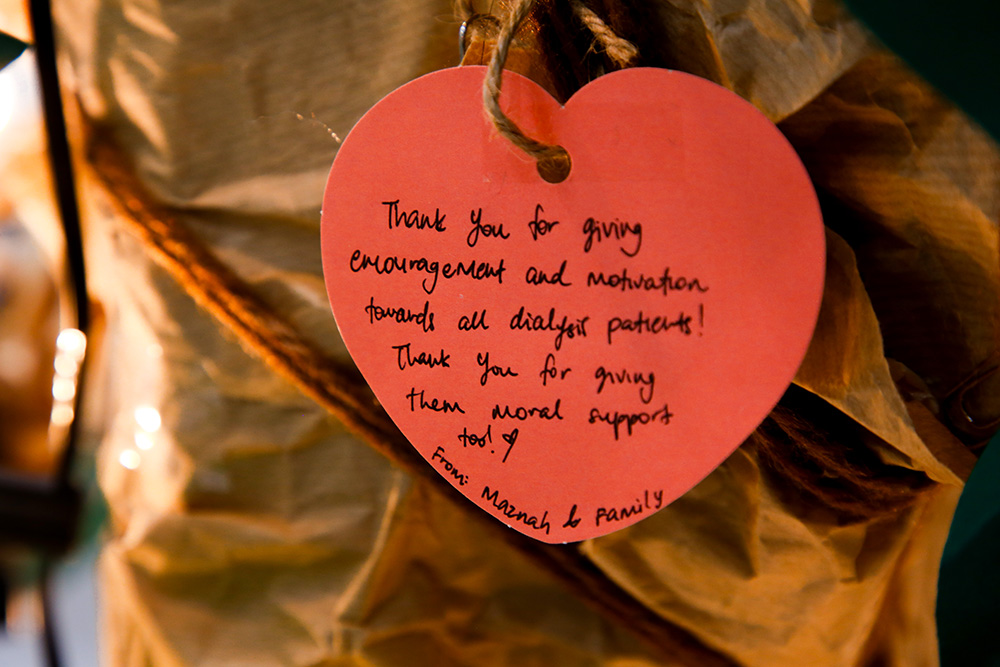 Thank you for giving
encouragement and motivation
towards all dialysis patients!
Thank you for giving
them moral support
too! ♡
From: Maznah & Family